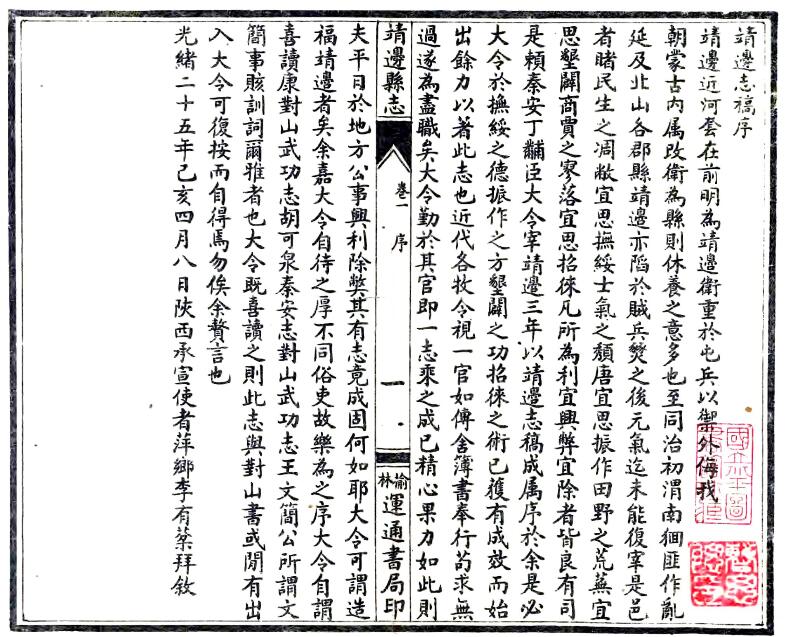 靖邊志稿序
靖邊近河套在前明為靖邊衛重於屯兵以禦外侮我
朝蒙古內属改衛為縣則休養之意多也至同治初渭南徊匪作亂
延及北山各郡縣靖邊亦陷於賊兵燹之後元氣迄未能復宰是邑
者睹民生之凋敝宜思撫綏士氣之頽唐宜思振作田野之荒蕪宜
思墾闢商賈之寥落宜思招徠凡所為利宜興弊宜除者皆良有司
是頼秦安丁黼臣大令宰靖邊三年以靖邊志稿成属序於余是必
大令於撫綏之德振作之方墾闢之功招徠之術已獲有成效而始
出餘力以著此志也近代各牧令視一官如傳舍簿書奉行苟求無
過遂為盡職矣大令勤於其官即一志乘之成已精心果力如此則
靖邊縣志
卷一 序
一
榆林運通書局印
夫平日於地方公事興利除獘其有志竟成固何如耶大令可謂造
福靖邊者矣余嘉大令自待之厚不同俗吏故樂為之序大令自謂
喜讀康對山武功志胡可泉秦安志對山武功志王文簡公所謂文
簡事賅訓詞爾雅者也大令既喜讀之則此志與對山書或閒有出
入大令可復按而自得焉勿俟余贅言也
光緒二十五年己亥四月八日陝西承宣使者萍鄉李有棻拜敘